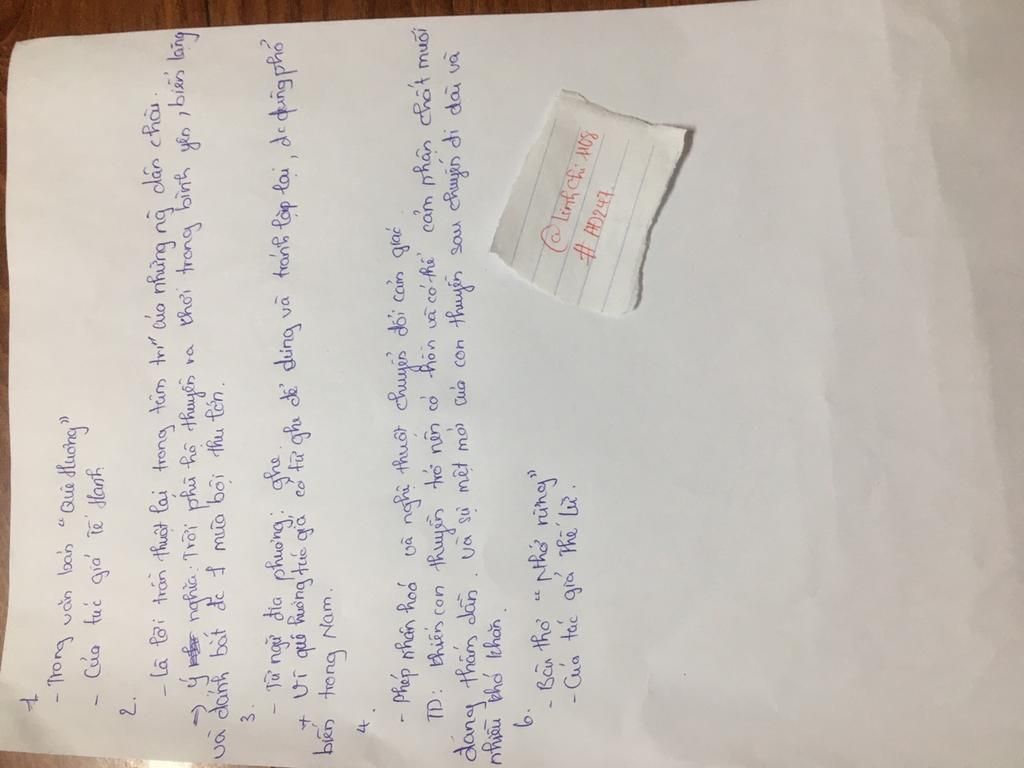 1.
- Trong văn bản "Quê Hương"
- Của tác giả Tế Hanh
2.
- Là lời trần thuật lại trong tâm trí của những ng dân chài.
=> Ý nghĩa: Trời phù hộ thuyền ra khơi trong bình yên, biển lặng
và đánh bắt đc 1 mùa bội thu tôm.
3.
- Từ ngữ địa phương: ghe
+ Vì quê hương tác giả có từ ghe để dùng và tránh lặp lại, đc dùng phổ
biến trong Nam.
4.
- Phép nhân hoá và nghệ thuật chuyển đổi cảm giác
TD: khiến con thuyền trở nên có hồn và có thể cảm nhận chất muối
đang thấm dần. Và sự mệt mỏi của con thuyền sau chuyến đi dài và
nhiều khó khăn.
6.
- Bài thơ "Nhớ rừng"
- Của tác giả Thế Lữ.
@linhchi1108
#AD247